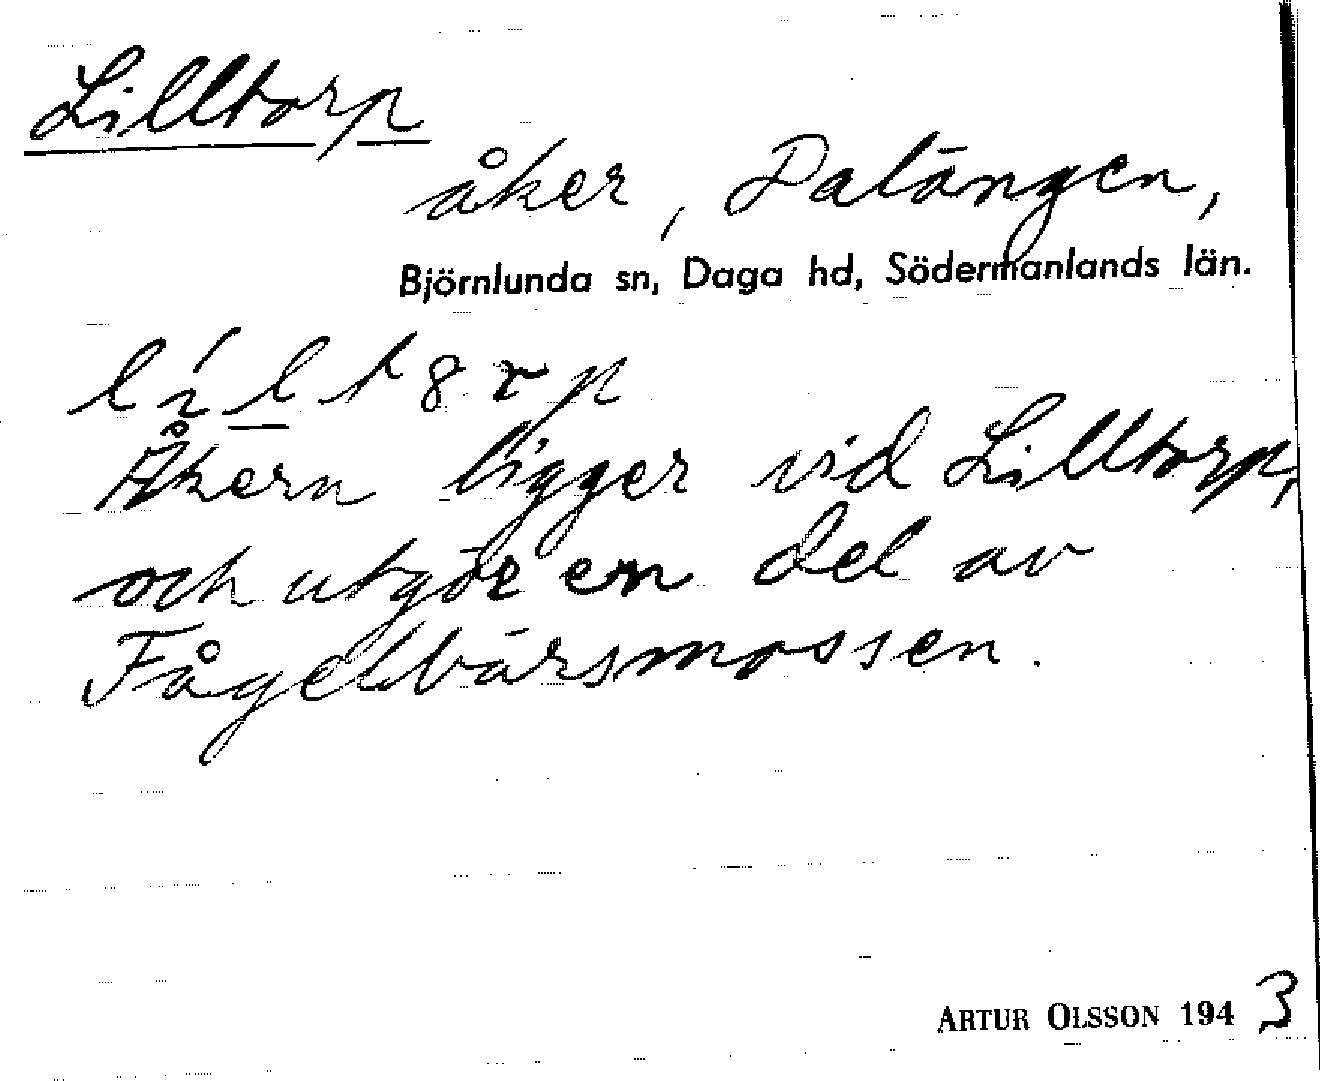 Lilltorp
åker, Dalängen,
Björnlunda sn, Daga hd, Södermanlands län.
lílt8rp
Åkern ligger vid Lilltorp,
och utgör en del av
Fågelbärsmossen.
ARTUR OLSSON 1943